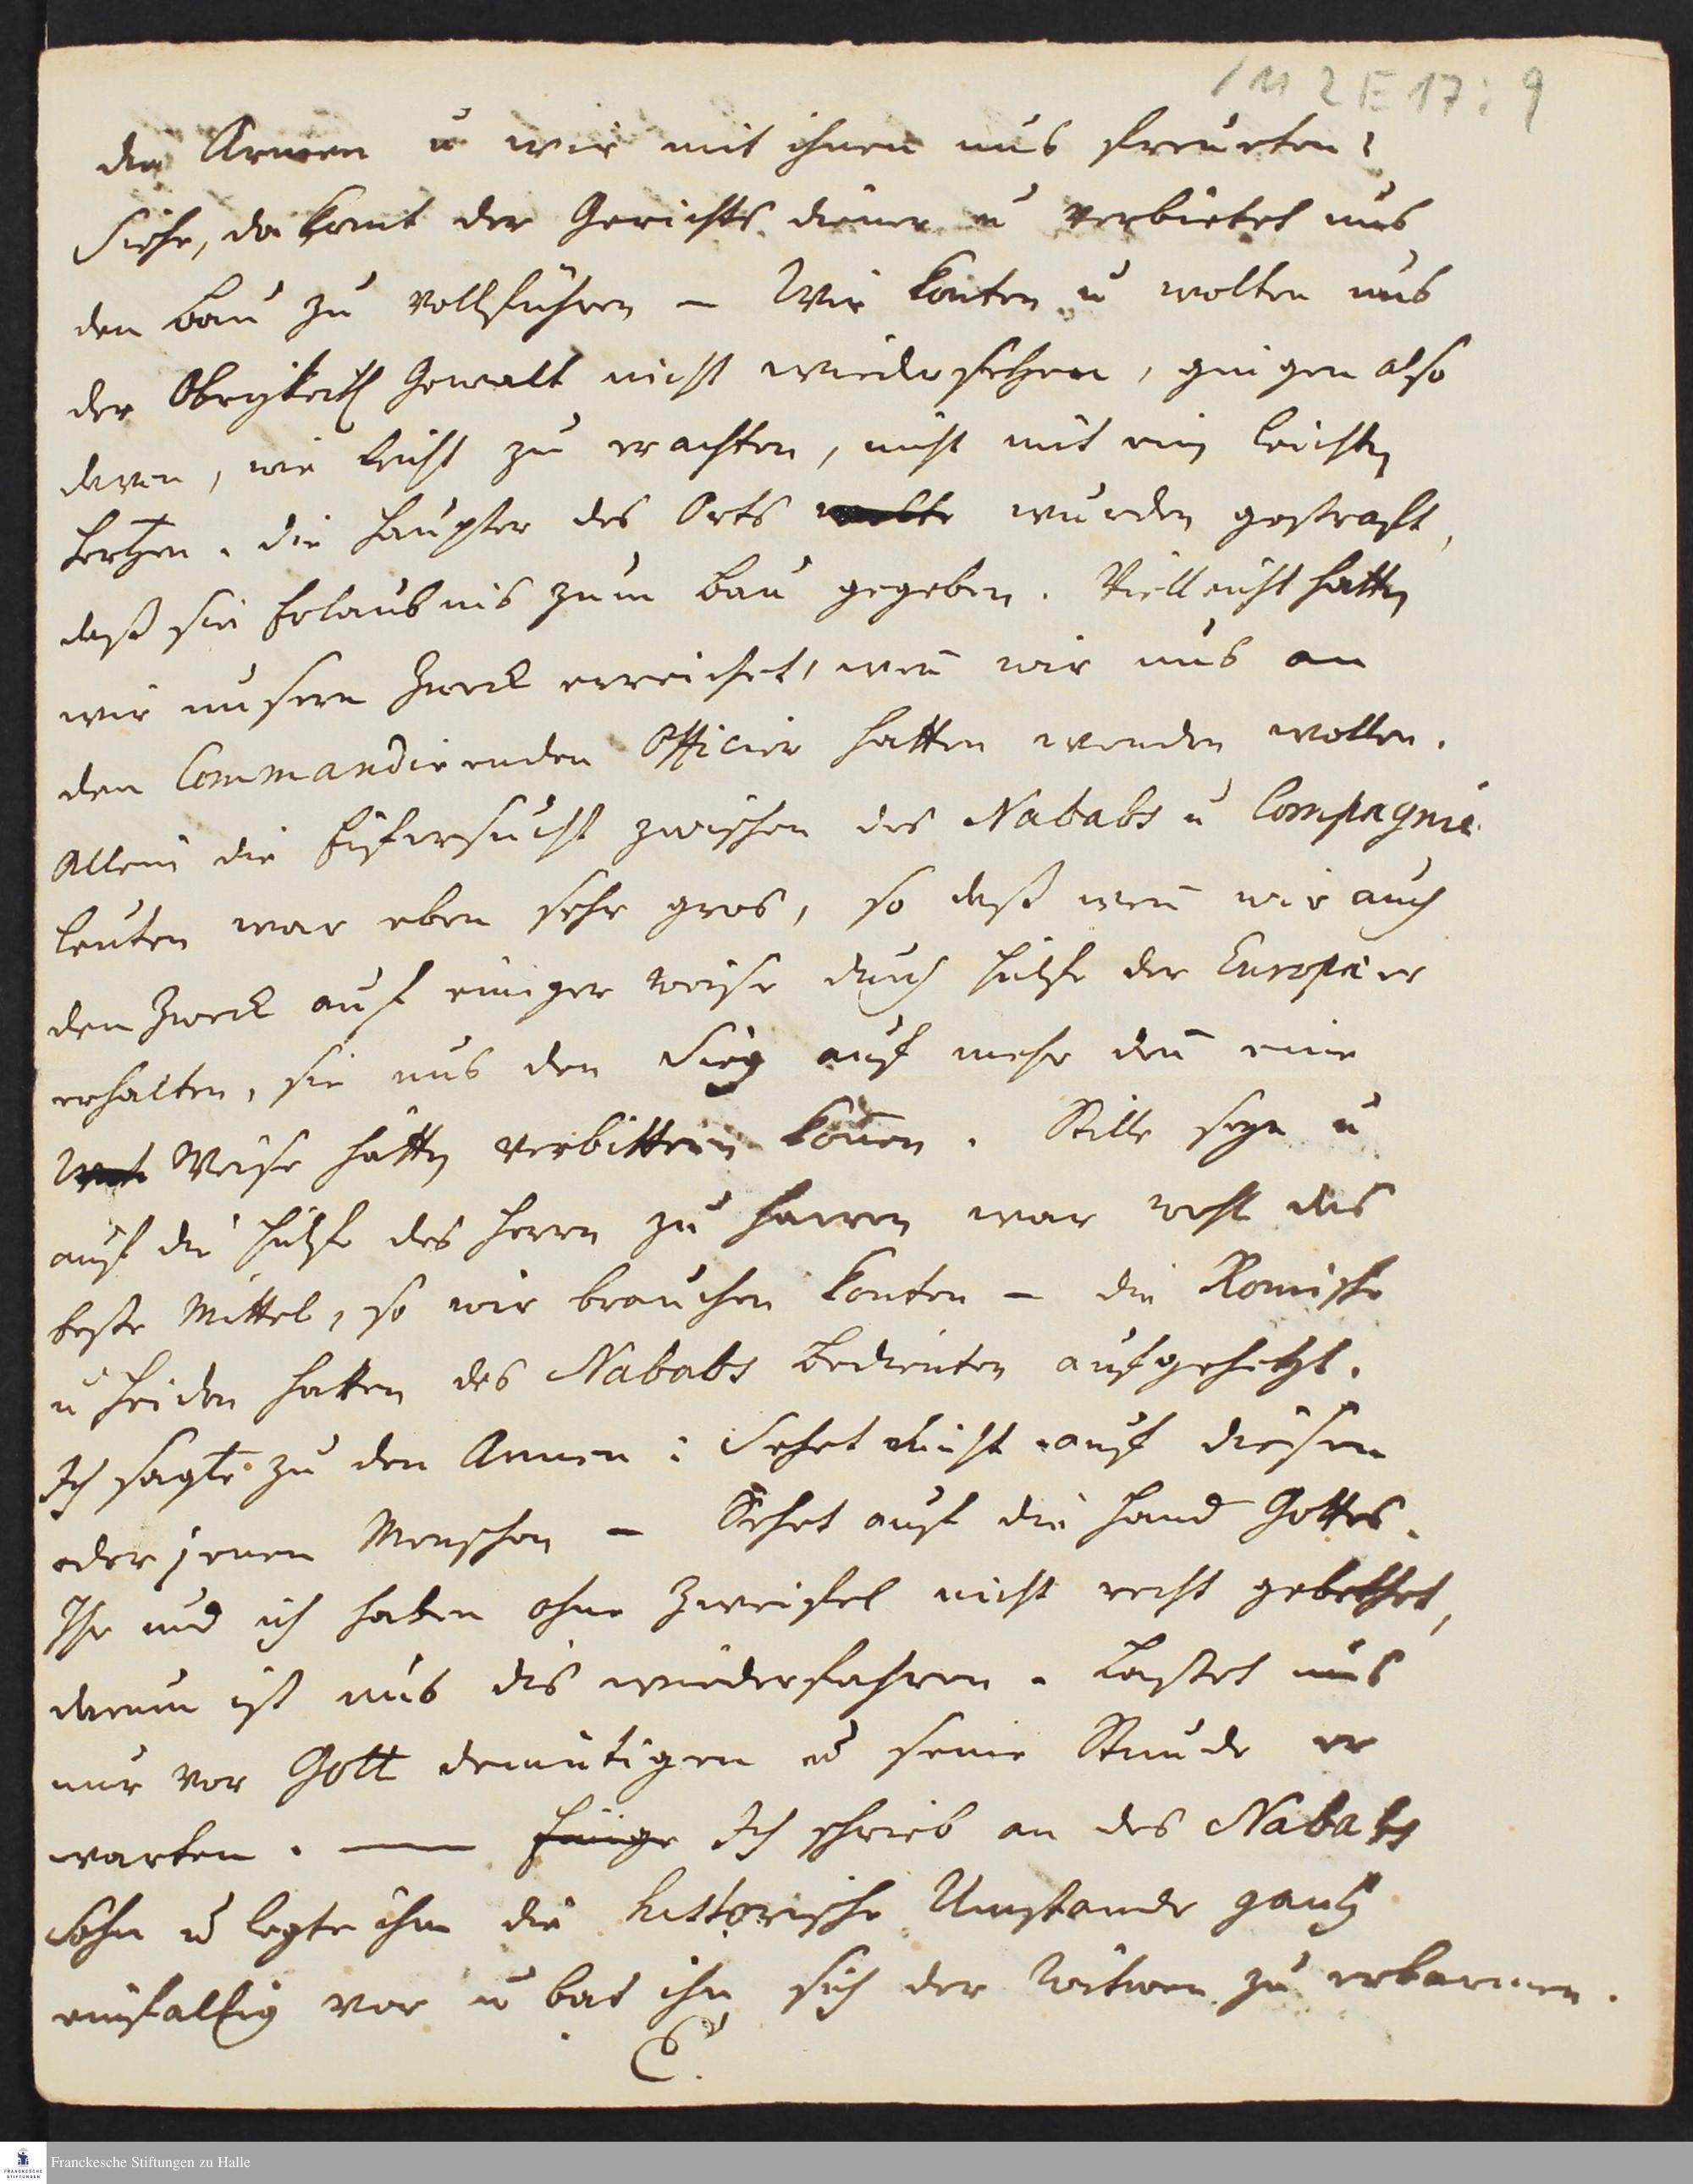 1H 2 E 17 : 9
die Armen u wir mit ihnen uns freueten:
Siehe, da komt der Gerichts diener u verbietet uns
den Bau zu vollführen – Wir konten u wolten uns
der Obrigkeitl Gewalt nicht wiedersetzen, gingen also
davon, wie leicht zu erachten, nicht mit ein leichten
Hertzen. die Häupter des Orts wolte wurden gestraft,
daß sie Erlaubnis zum Bau gegeben. Vielleicht hatten
wir unsern Zweck erreichet, wen wir uns an
den Commandirenden Officier hatten wenden wollen.
Allein die Eifersucht zwischen des Nababs u Compagnie
leuten war eben sehr gros, so daß wen wir auch
den Zweck auf einiger weise durch Hülfe der Europäer
erhalten, sie uns den Sieg auf mehr den eine
Weise hätten verbittern könen. Stille seyn u
auf die Hülfe des Herrn zu harren war wohl das
beste Mittel, so wir brauchen konten – die Römische
u Heiden hatten des Nababs Bedienten aufgehetzt.
Ich sagte zu den Armen: Sehet nicht auf diesen
oder jenen Menschen – Sehet auf die Hand Gottes.
Ihr und ich haben ohne Zweifel nicht recht gebethet,
darum ist uns dis wiederfahren. Lasset uns
nur vor Gott demütigen u seine Stunde er
warten. — Einige Ich schrieb an des Nababs
Sohn u legte ihm die historische Umstände gantz
einfaltig vor u bat ihn sich der Witwen zu erbarmen.